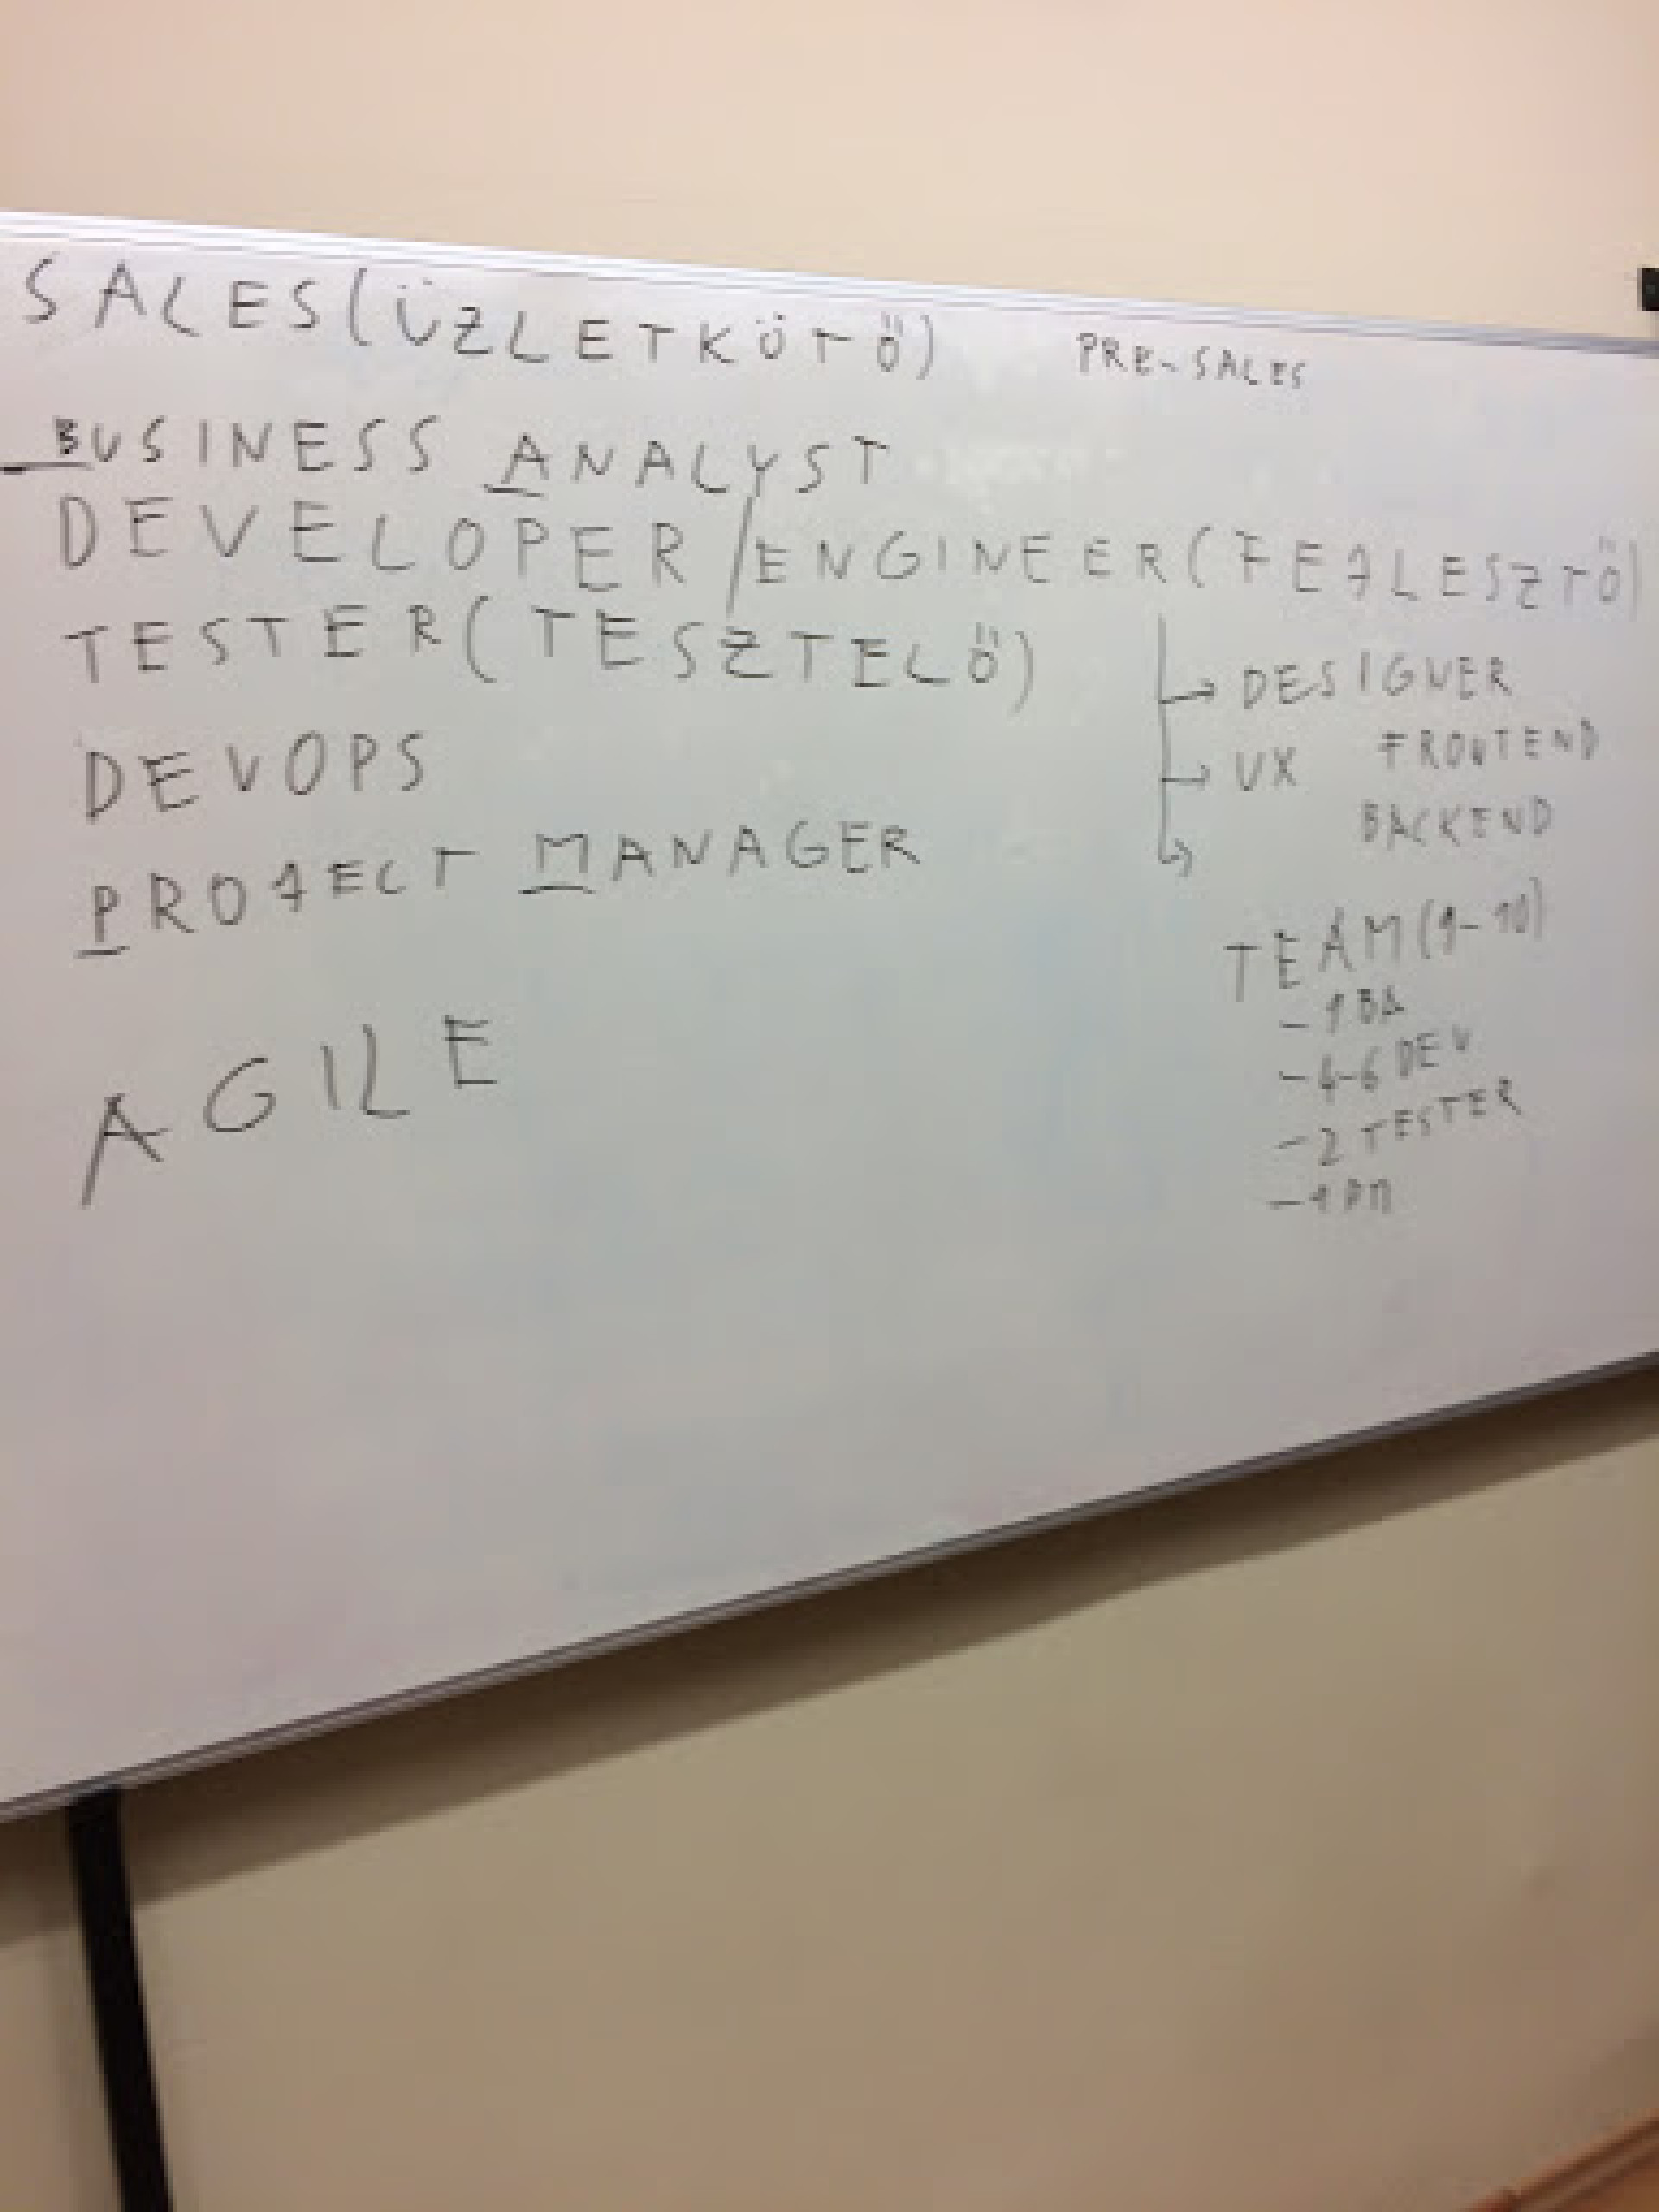 SALES(ÜZLETKÖTŐ) PRE-SALES
BUSINESS ANALYST
DEVELOPER/ENGINEER(FEJLESZTŐ)
TESTER(TESZTELŐ)
→ DESIGNER
DEVOPS
→ UX FRONTEND
BACKEND
PROJECT MANAGER
AGILE
TEAM(9-10)
- 1 BA
- 4-6 DEV
- 2 TESTER
- 1 PM